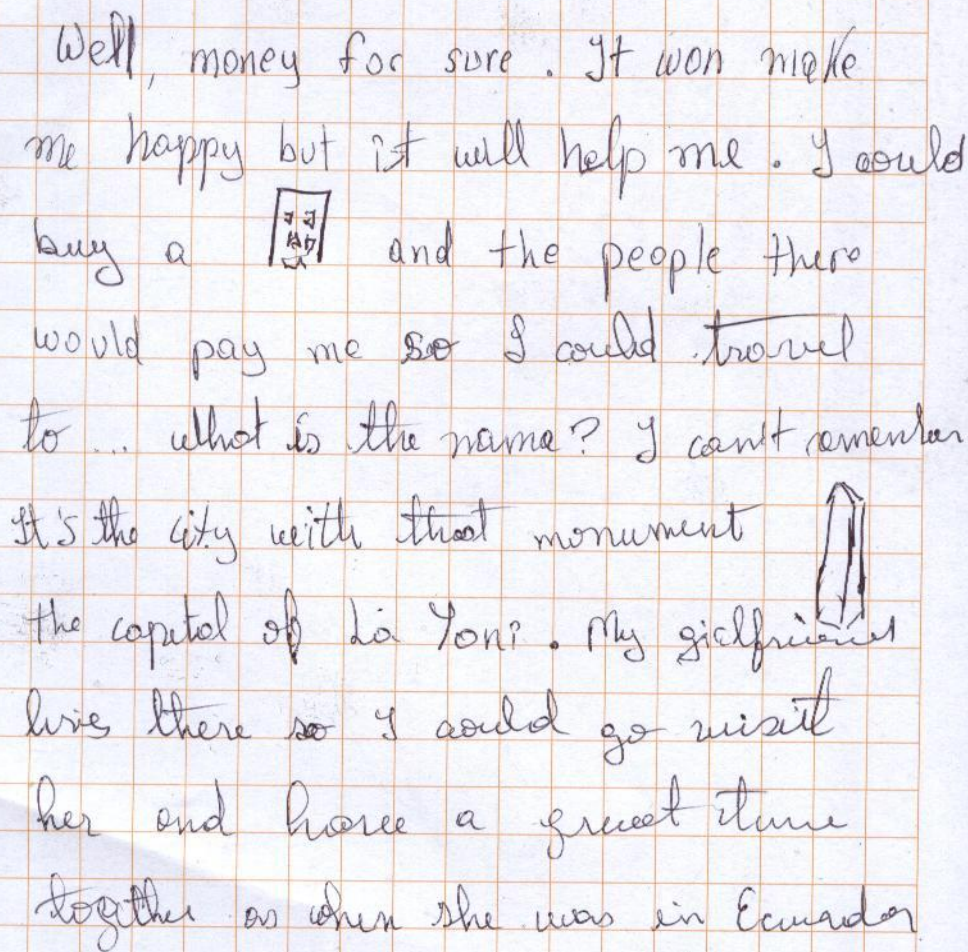 Well, money for sure. It won make
me happy but ist will help me. I could
buy a and the people there
would pay me so I could travel
to ... what is the name? I can't remember
It's the city with that monument
the capital of La Yoni. My girlfriend
lives there so I could go visit
her and have a great time
together as when she was in Ecuador